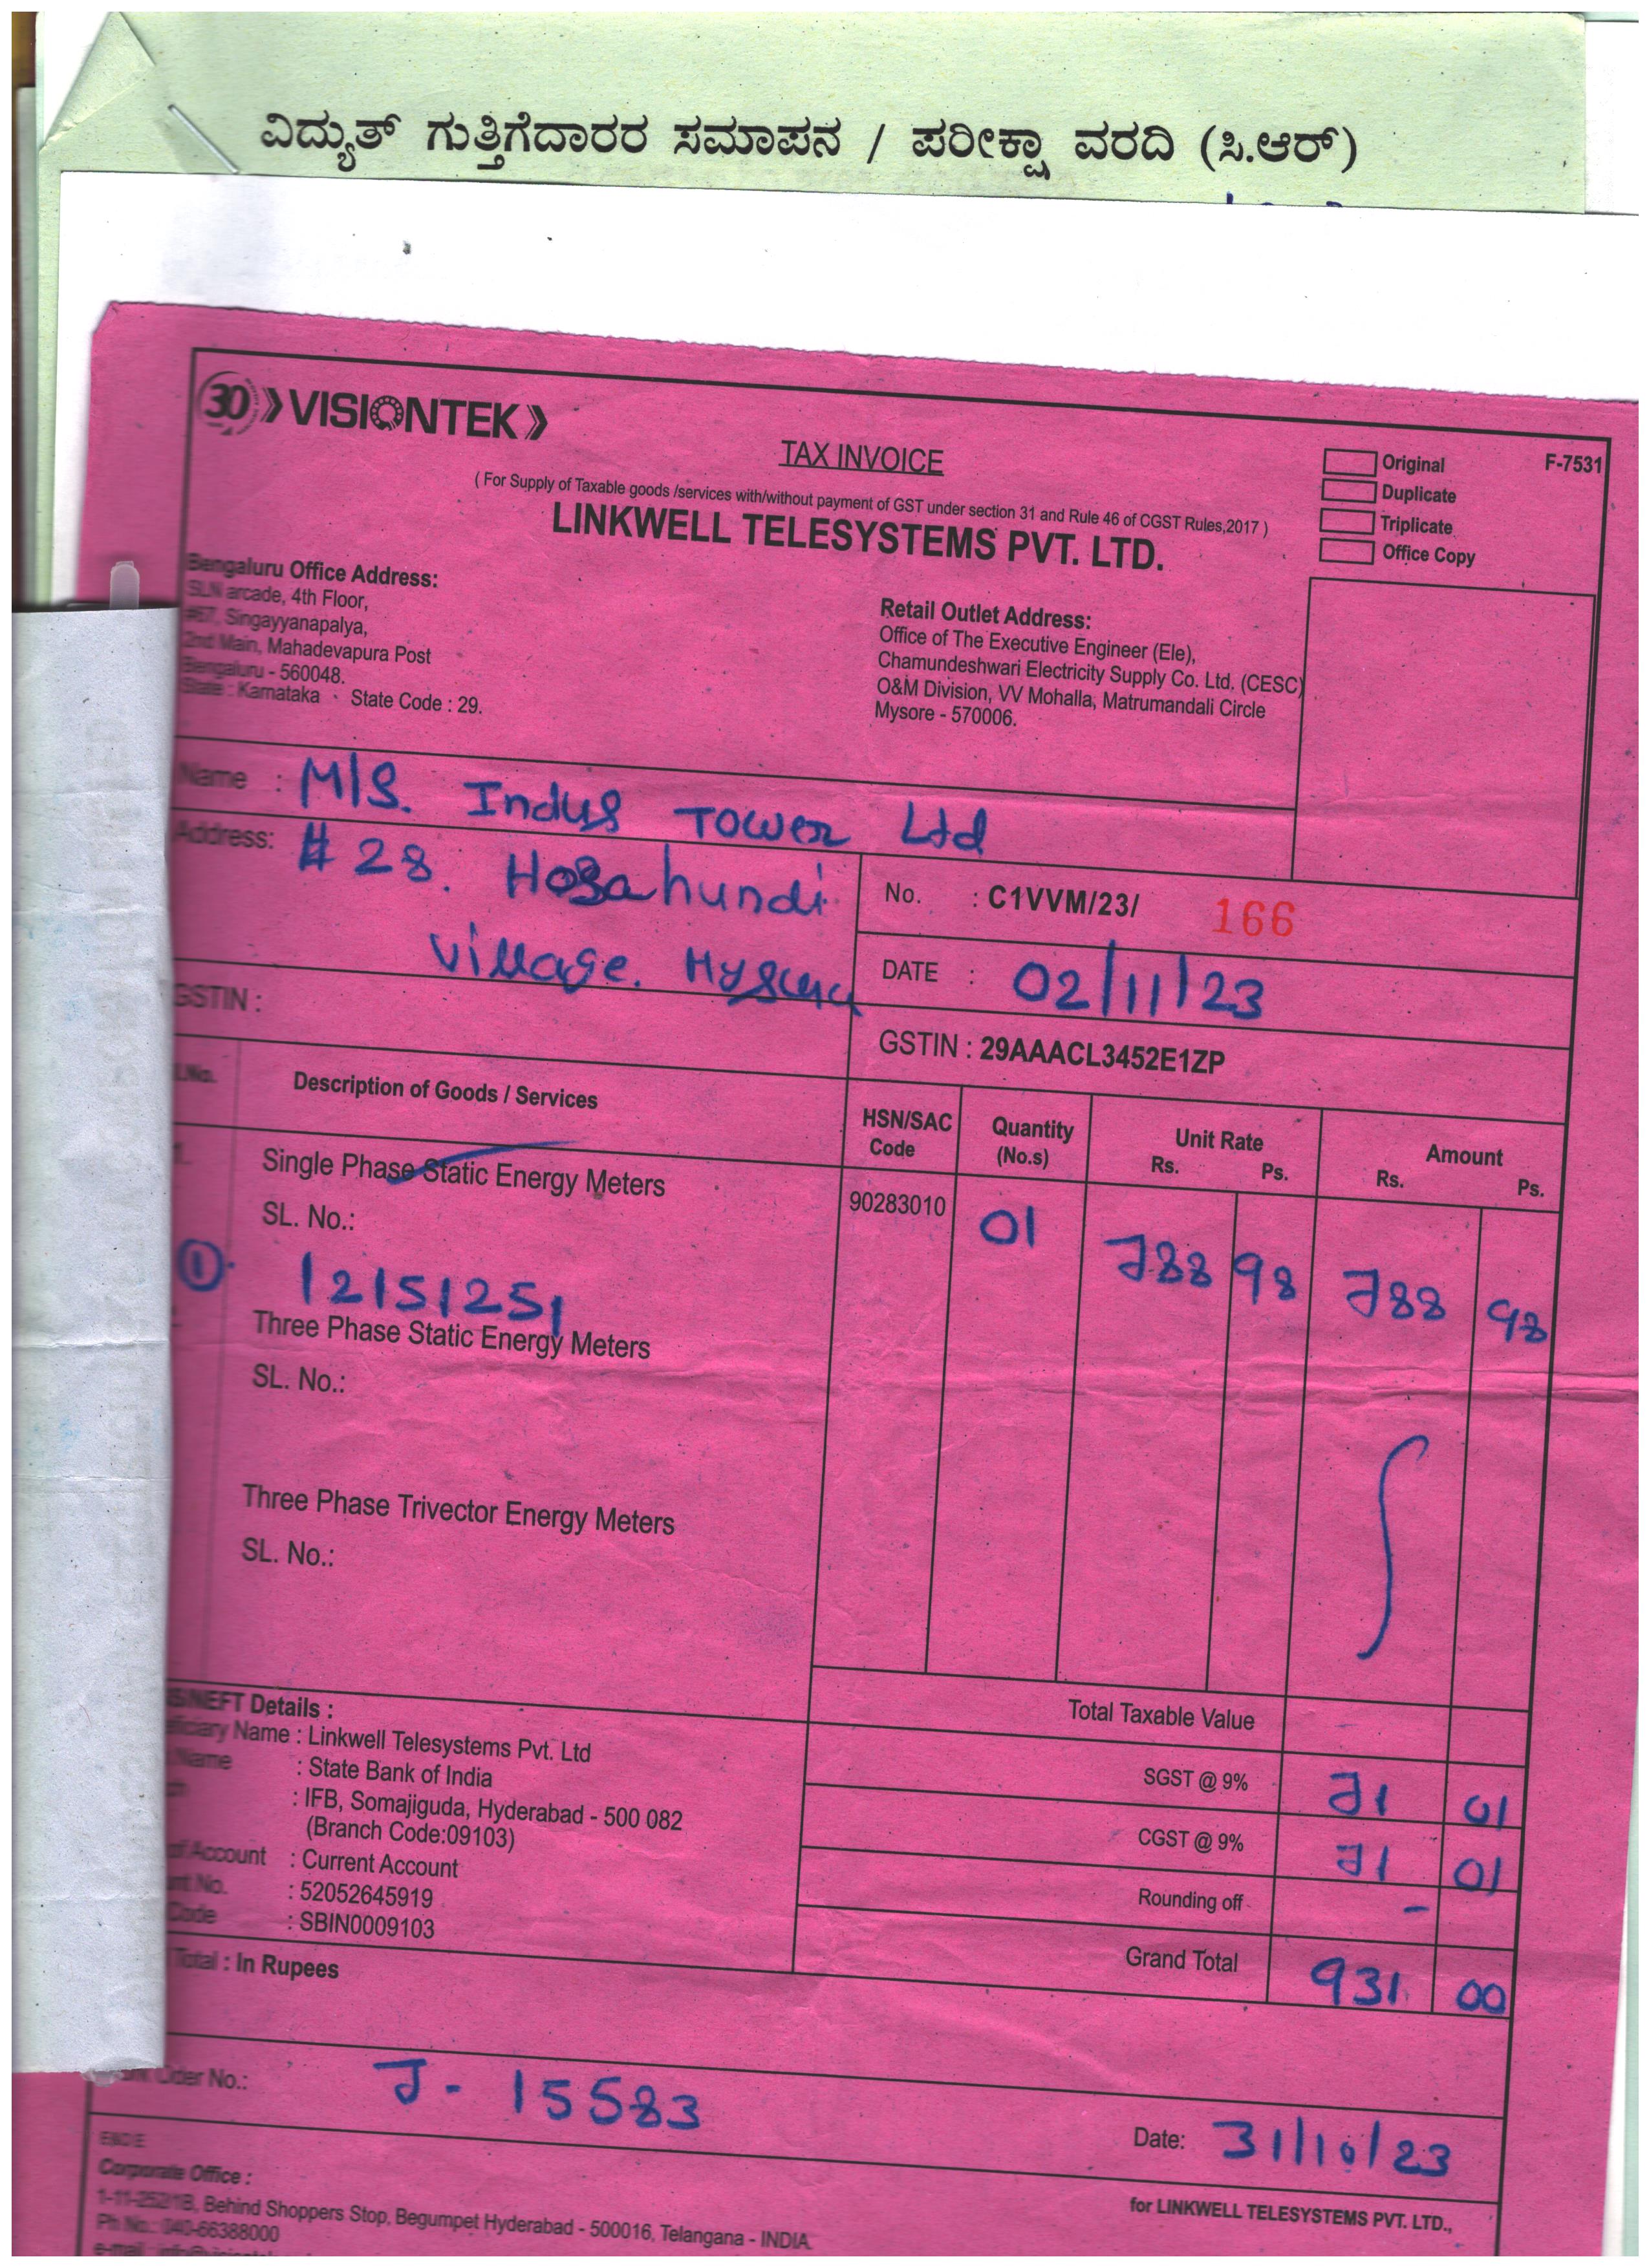 ವಿದ್ಯುತ್ ಗುತ್ತಿಗೆದಾರರ ಸಮಾಪನ / ಪರೀಕ್ಷಾ ವರದಿ (ಸಿ.ಆರ್)
30 VISIONTEK
TAX INVOICE
( For Supply of Taxable goods /services with/without payment of GST under section 31 and Rule 46 of CGST Rules,2017 )
LINKWELL TELESYSTEMS PVT. LTD.
Original
Duplicate
Triplicate
Office Copy
F-7531
Bengaluru Office Address:
SLN arcade, 4th Floor,
#67, Singayyanapalya,
2nd Main, Mahadevapura Post
Bengaluru - 560048.
State : Karnataka State Code : 29.
Retail Outlet Address:
Office of The Executive Engineer (Ele),
Chamundeshwari Electricity Supply Co. Ltd. (CESC)
O&M Division, VV Mohalla, Matrumandali Circle
Mysore - 570006.
Name : M/S. Indus Tower Ltd
Address: # 28. Hosahundi
Village.
GSTIN :
No. : C1VVM/23/ 166
DATE : 02/11/23
GSTIN : 29AAACL3452E1ZP
Description of Goods / Services
HSN/SAC Code
Quantity (No.s)
Unit Rate Rs. Ps.
Amount Rs. Ps.
Single Phase Static Energy Meters
SL. No.:
90283010 01 788 98 788 98
① 12151251
Three Phase Static Energy Meters
SL. No.:
Three Phase Trivector Energy Meters
SL. No.:
Total Taxable Value
SGST @ 9% 71 01
CGST @ 9% 71 01
Rounding off -
Grand Total 931 00
NEFT Details :
Name : Linkwell Telesystems Pvt. Ltd
Name : State Bank of India
: IFB, Somajiguda, Hyderabad - 500 082
(Branch Code:09103)
Account : Current Account
No. : 52052645919
Code : SBIN0009103
Total : In Rupees
No.: J - 15583
Date: 31/10/23
for LINKWELL TELESYSTEMS PVT. LTD.,
Corporate Office :
1-11-252/1B, Behind Shoppers Stop, Begumpet Hyderabad - 500016, Telangana - INDIA.
Ph No.: 040-66388000